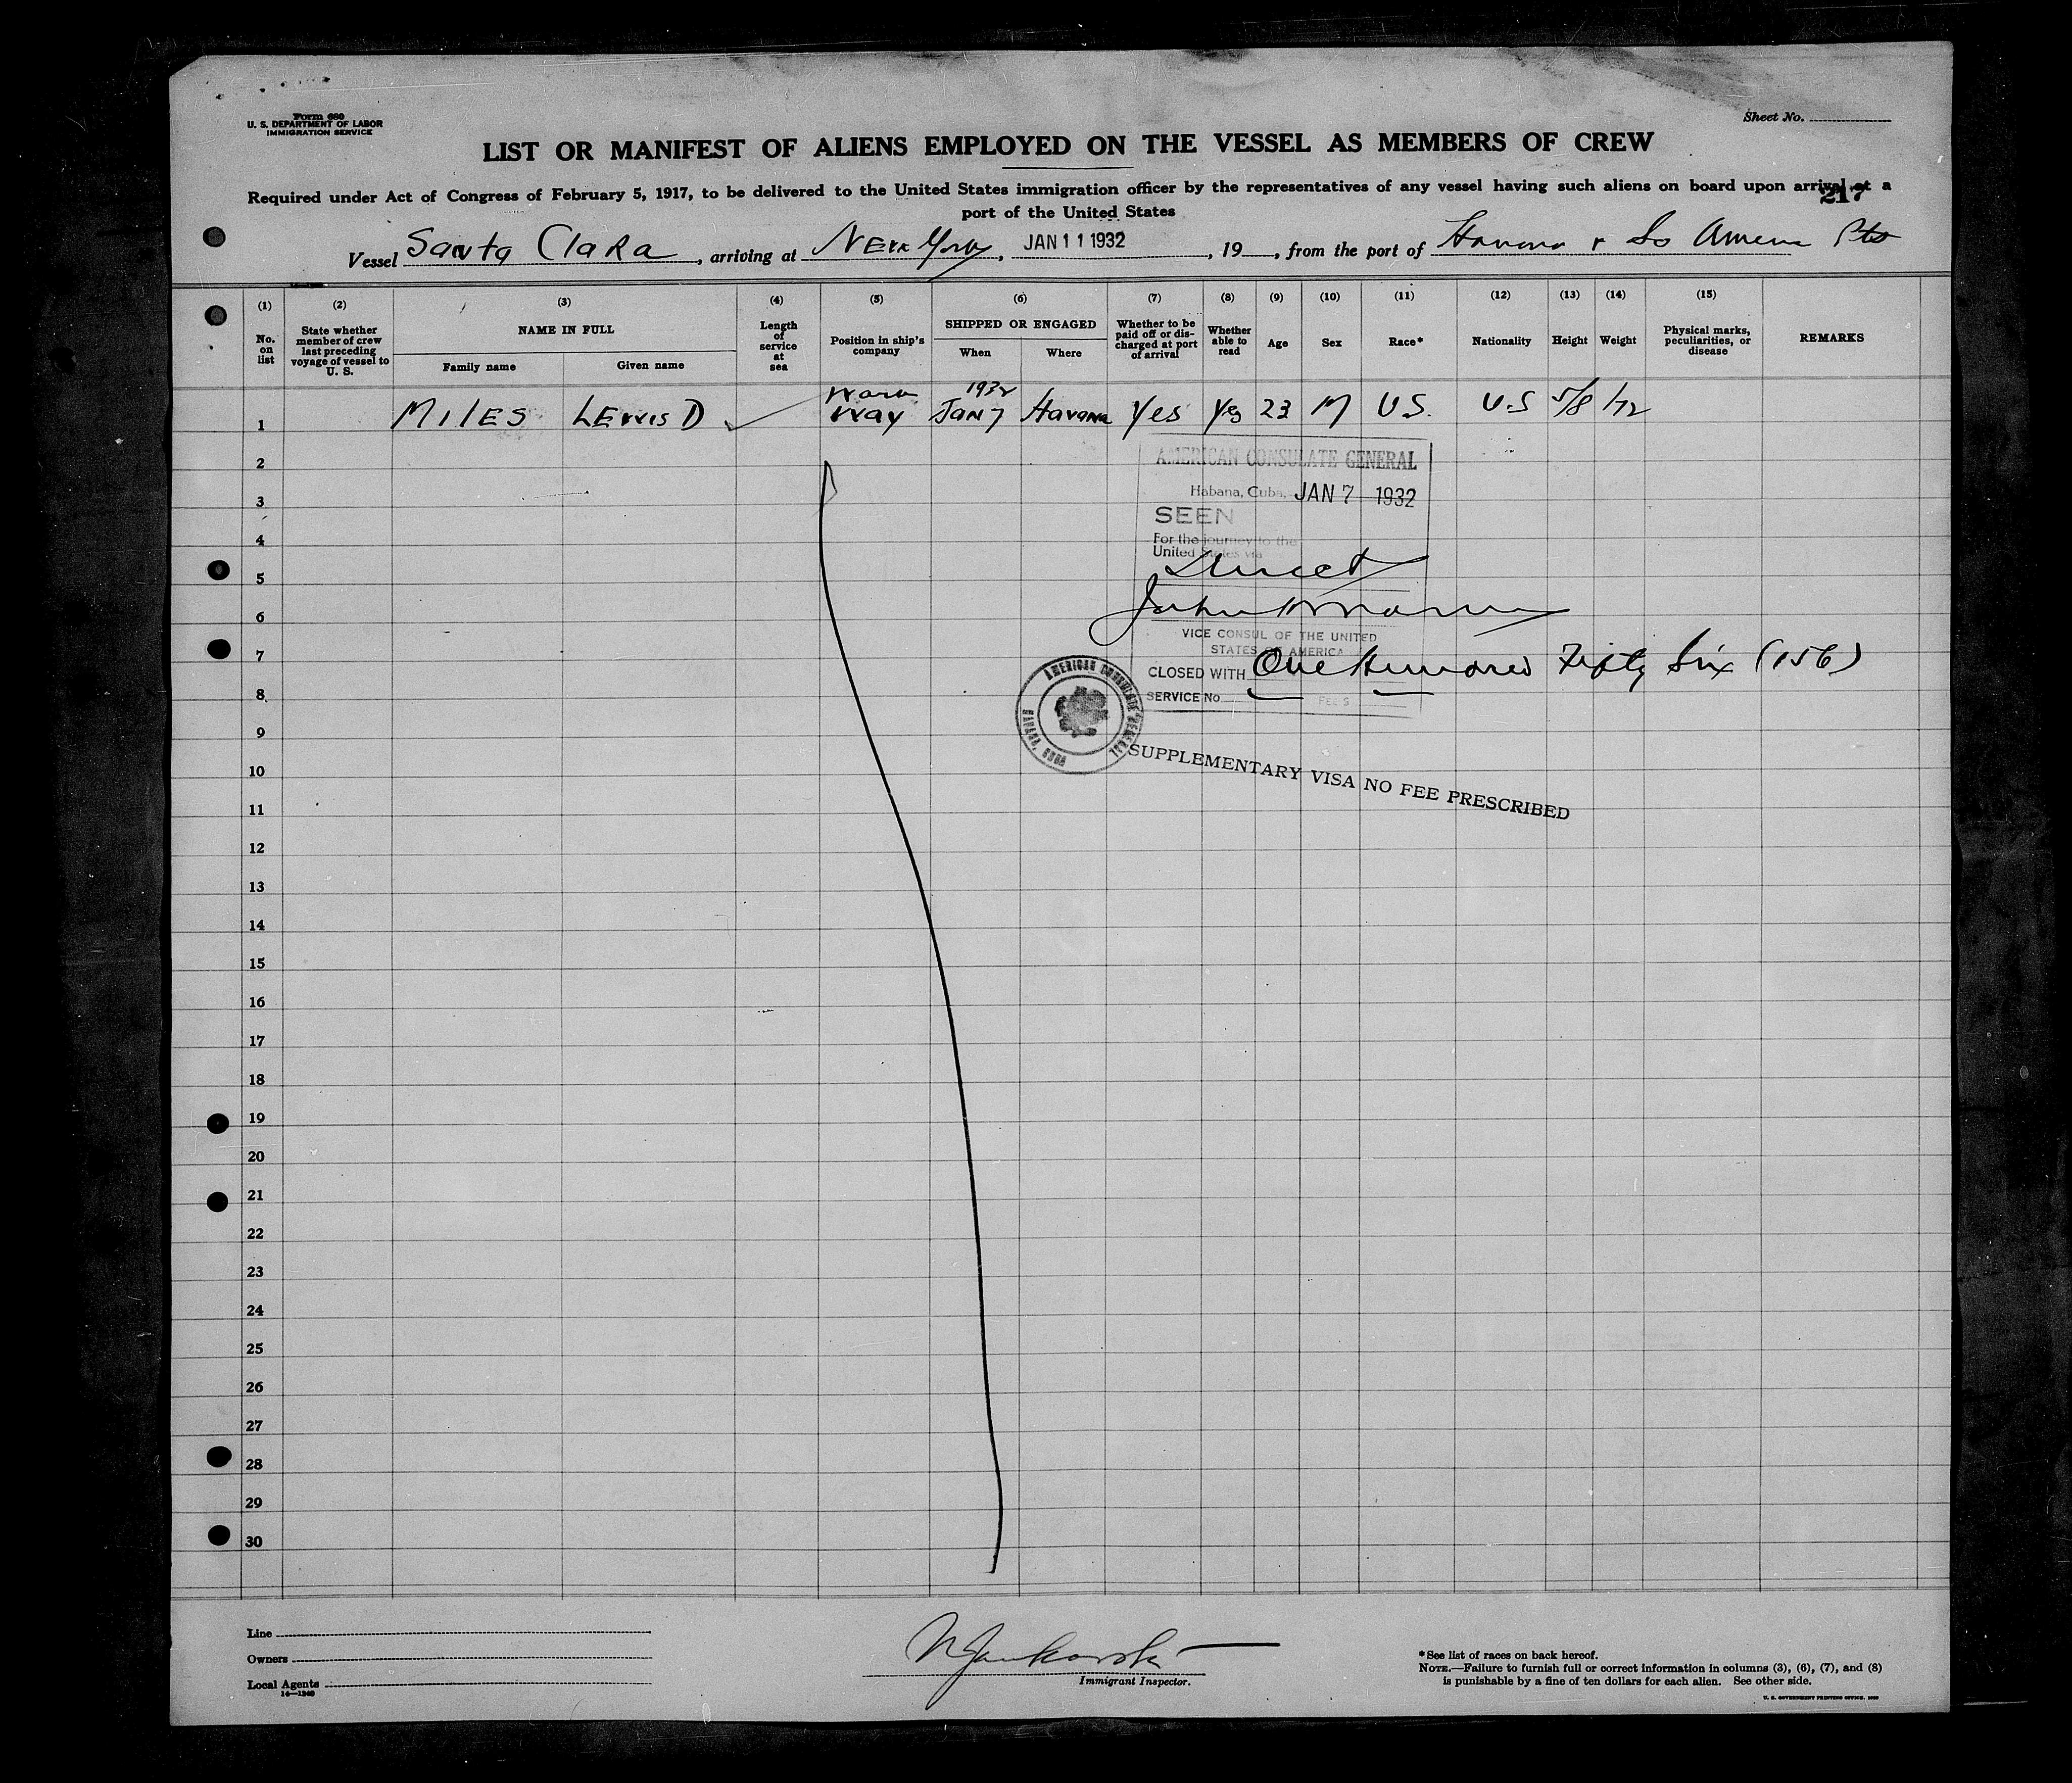 Form 680
U. S. DEPARTMENT OF LABOR
IMMIGRATION SERVICE
Sheet No.
LIST OR MANIFEST OF ALIENS EMPLOYED ON THE VESSEL AS MEMBERS OF CREW
Required under Act of Congress of February 5, 1917, to be delivered to the United States immigration officer by the representatives of any vessel having such aliens on board upon arrival at a
port of the United States
217
Vessel Santa Clara, arriving at New York, JAN 11 1932, 19, from the port of Havana + So Pts
(1) (2) (3) (4) (5) (6) (7) (8) (9) (10) (11) (12) (13) (14) (15)
No. on list
State whether member of crew last preceding voyage of vessel to U. S.
NAME IN FULL
Family name Given name
Length of service at sea
Position in ship's company
SHIPPED OR ENGAGED
When Where
Whether to be paid off or discharged at port of arrival
Whether able to read
Age
Sex
Race*
Nationality
Height
Weight
Physical marks, peculiarities, or disease
REMARKS
Work 1932
1 MILES LEWIS D Way Jan 7 Havana Yes Yes 23 M U.S. U.S 5/8 172
2
AMERICAN CONSULATE GENERAL
3
Habana, Cuba, JAN 7 1932
SEEN
4
For the journey to the
United States via
5
Direct
6
John
VICE CONSUL OF THE UNITED
7
STATES OF AMERICA
CLOSED WITH One Hundred Fifty Six (156)
8
SERVICE No. FEE $
AMERICAN CONSULATE GENERAL HABANA, CUBA
9
10
SUPPLEMENTARY VISA NO FEE PRESCRIBED
11
12
13
14
15
16
17
18
19
20
21
22
23
24
25
26
27
28
29
30
Line
Owners
Local Agents
14—1240
Immigrant Inspector.
*See list of races on back hereof.
NOTE.—Failure to furnish full or correct information in columns (3), (6), (7), and (8)
is punishable by a fine of ten dollars for each alien. See other side.